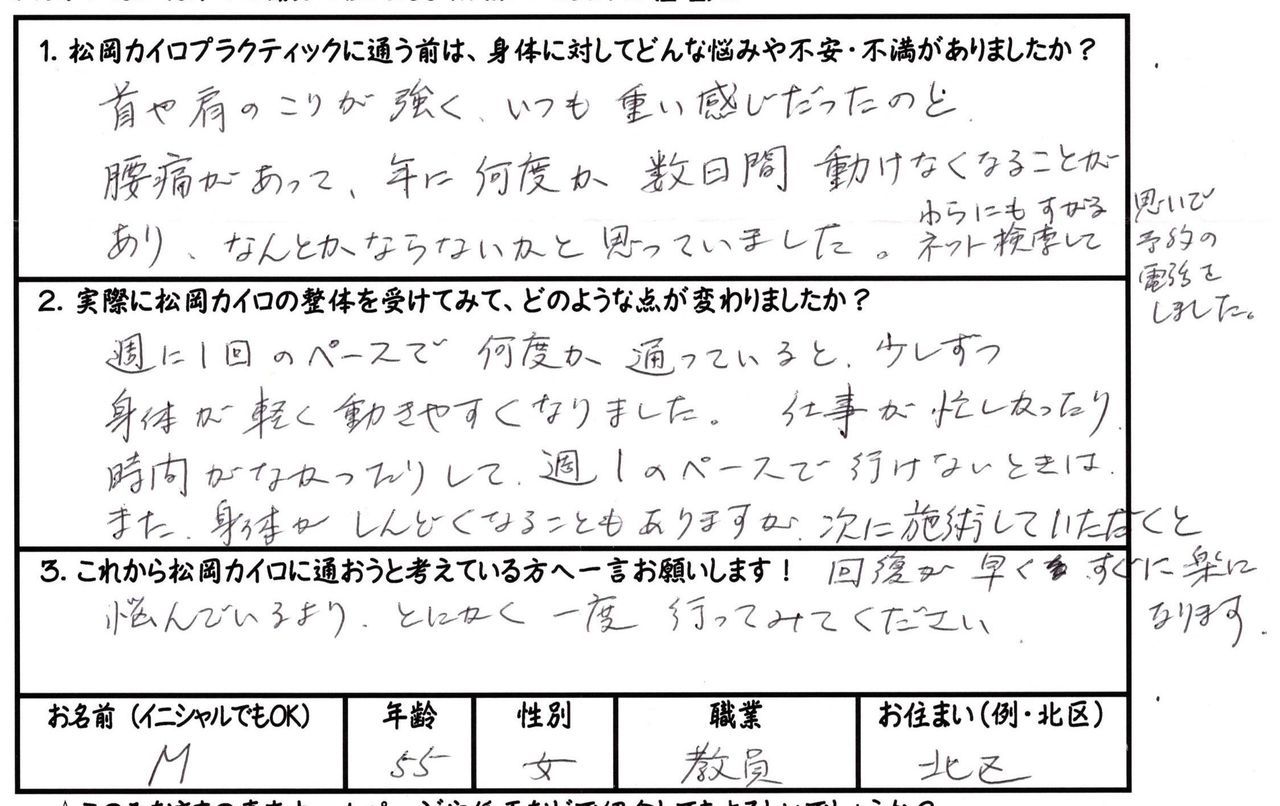 1. 松岡カイロプラクティックに通う前は、身体に対してどんな悩みや不安・不満がありましたか？
首や肩のこりが強く、いつも重い感じだったのと
腰痛があって、年に何度か数日間動けなくなることが
あり、なんとかならないかと思っていました。
わらにもすがる
ネット検索して
思いで
予約の
電話を
しました。
2. 実際に松岡カイロの整体を受けてみて、どのような点が変わりましたか？
週に1回のペースで何度か通っていると、少しずつ
身体が軽く動きやすくなりました。仕事が忙しかったり
時間がなかったりして、週1のペースで行けないときは、
また、身体がしんどくなることもありますが、次に施術していただくと
回復が早くすぐに楽に
なります。
3. これから松岡カイロに通おうと考えている方へ一言お願いします！
悩んでいるより、とにかく一度行ってみてください
お名前（イニシャルでもOK） 年齢 性別 職業 お住まい（例・北区）
M 55 女 教員 北区